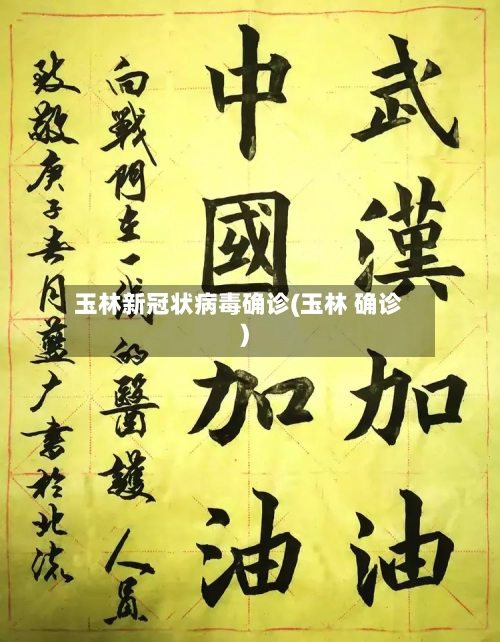 武漢加油
中國加油
向戰鬥在一线的醫護人員
致敬庚子春月藍广書於北流
玉林新冠状病毒确诊(玉林 确诊
)